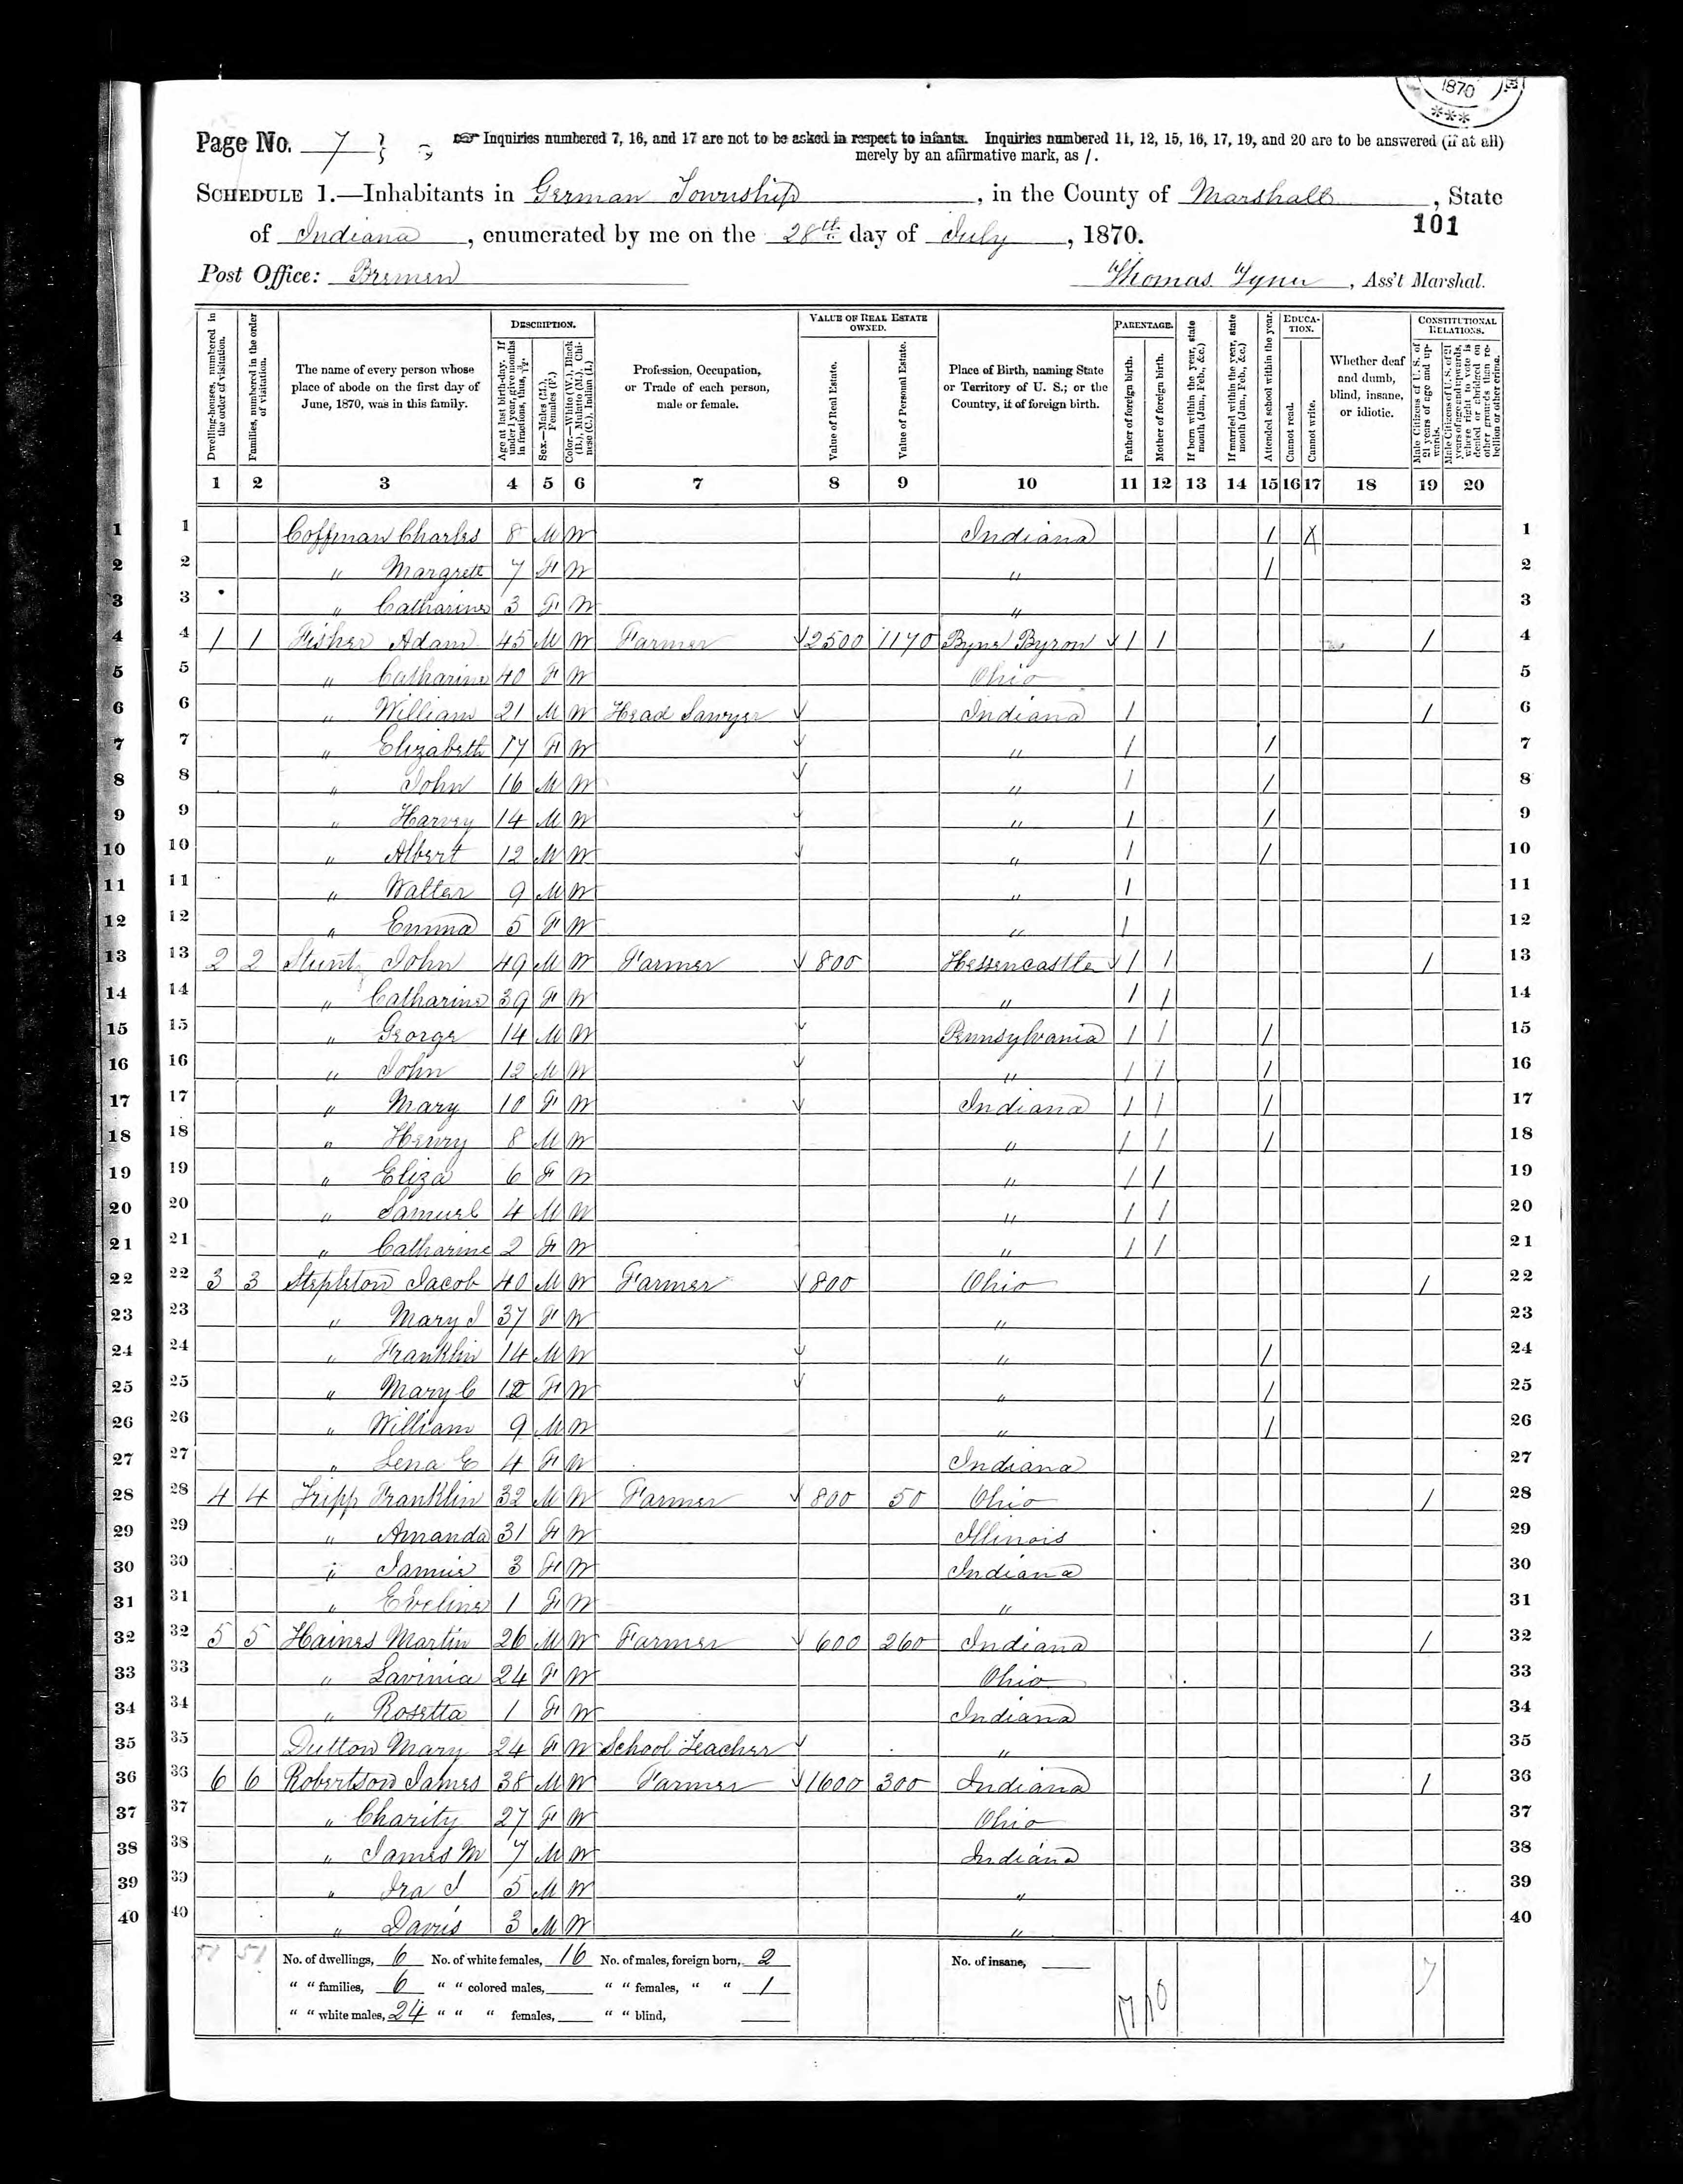 1870
***
Page No. 7
Inquiries numbered 7, 16, and 17 are not to be asked in respect to infants. Inquiries numbered 11, 12, 15, 16, 17, 19, and 20 are to be answered (if at all)
merely by an affirmative mark, as /.
SCHEDULE 1.—Inhabitants in German Township, in the County of Marshall, State
of Indiana, enumerated by me on the 28th day of July, 1870.
101
Post Office: Bremen
Thomas Tyner, Ass't Marshal.
Dwelling-houses, numbered in the order of visitation.
Families, numbered in the order of visitation.
The name of every person whose place of abode on the first day of June, 1870, was in this family.
DESCRIPTION.
Age at last birth-day. If under 1 year, give months in fractions, thus, 3/12.
Sex.—Males (M.), Females (F.)
Color.—White (W.), Black (B.), Mulatto (M.), Chinese (C.), Indian (I.)
Profession, Occupation, or Trade of each person, male or female.
VALUE OF REAL ESTATE OWNED.
Value of Real Estate.
Value of Personal Estate.
Place of Birth, naming State or Territory of U. S.; or the Country, if of foreign birth.
PARENTAGE.
Father of foreign birth.
Mother of foreign birth.
If born within the year, state month (Jan., Feb., &c.)
If married within the year, state month (Jan., Feb., &c.)
Attended school within the year.
EDUCATION.
Cannot read.
Cannot write.
Whether deaf and dumb, blind, insane, or idiotic.
CONSTITUTIONAL RELATIONS.
Male Citizens of U. S. of 21 years of age and upwards.
Male Citizens of U. S. of 21 years of age and upwards, whose right to vote is denied or abridged on other grounds than rebellion or other crime.
1 2 3 4 5 6 7 8 9 10 11 12 13 14 15 16 17 18 19 20
1 1 Coffman Charles 8 M W Indiana / X 1
2 2 " Margrett 7 F W " / 2
3 3 " Catharine 3 F W " 3
4 4 1 1 Fisher Adam 45 M W Farmer 2500 1170 Byron / / / 4
5 5 " Catharine 40 F W Ohio 5
6 6 " William 21 M W Head Sawyer Indiana / / 6
7 7 " Elizabeth 17 F W " / / 7
8 8 " John 16 M W " / / 8
9 9 " Harvey 14 M W " / / 9
10 10 " Albert 12 M W " / / 10
11 11 " Walter 9 M W " / 11
12 12 " Emma 5 F W " / 12
13 13 2 2 Stuntz John 49 M W Farmer 800 Hessencastle / / / 13
14 14 " Catharine 39 F W " / / 14
15 15 " George 14 M W Pennsylvania / / / 15
16 16 " John 12 M W " / / / 16
17 17 " Mary 10 F W Indiana / / / 17
18 18 " Henry 8 M W " / / / 18
19 19 " Eliza 6 F W " / / 19
20 20 " Samuel 4 M W " / / 20
21 21 " Catharine 2 F W " / / 21
22 22 3 3 Stepleton Jacob 40 M W Farmer 800 Ohio / 22
23 23 " Mary J 37 F W " 23
24 24 " Franklin 14 M W " / 24
25 25 " Mary C 12 F W " / 25
26 26 " William 9 M W " / 26
27 27 " Lena E 4 F W Indiana 27
28 28 4 4 Tripp Franklin 32 M W Farmer 800 50 Ohio / 28
29 29 " Amanda 31 F W Illinois 29
30 30 " Jamie 3 F W Indiana 30
31 31 " Eveline 1 F W " 31
32 32 5 5 Haines Martin 26 M W Farmer 600 260 Indiana / 32
33 33 " Lavinia 24 F W Ohio 33
34 34 " Rosetta 1 F W Indiana 34
35 35 Dutton Mary 24 F W School Teacher " 35
36 36 6 6 Robertson James 38 M W Farmer 1600 300 Indiana / 36
37 37 " Charity 27 F W Ohio 37
38 38 " James M 7 M W Indiana 38
39 39 " Ira J 5 M W " 39
40 40 " Davis 3 M W " 40
No. of dwellings, 6 No. of white females, 16 No. of males, foreign born, 2 No. of insane,
" " families, 6 " " colored males, " " females, " " 1
" " white males, 24 " " " females, " " blind,
17 10 7